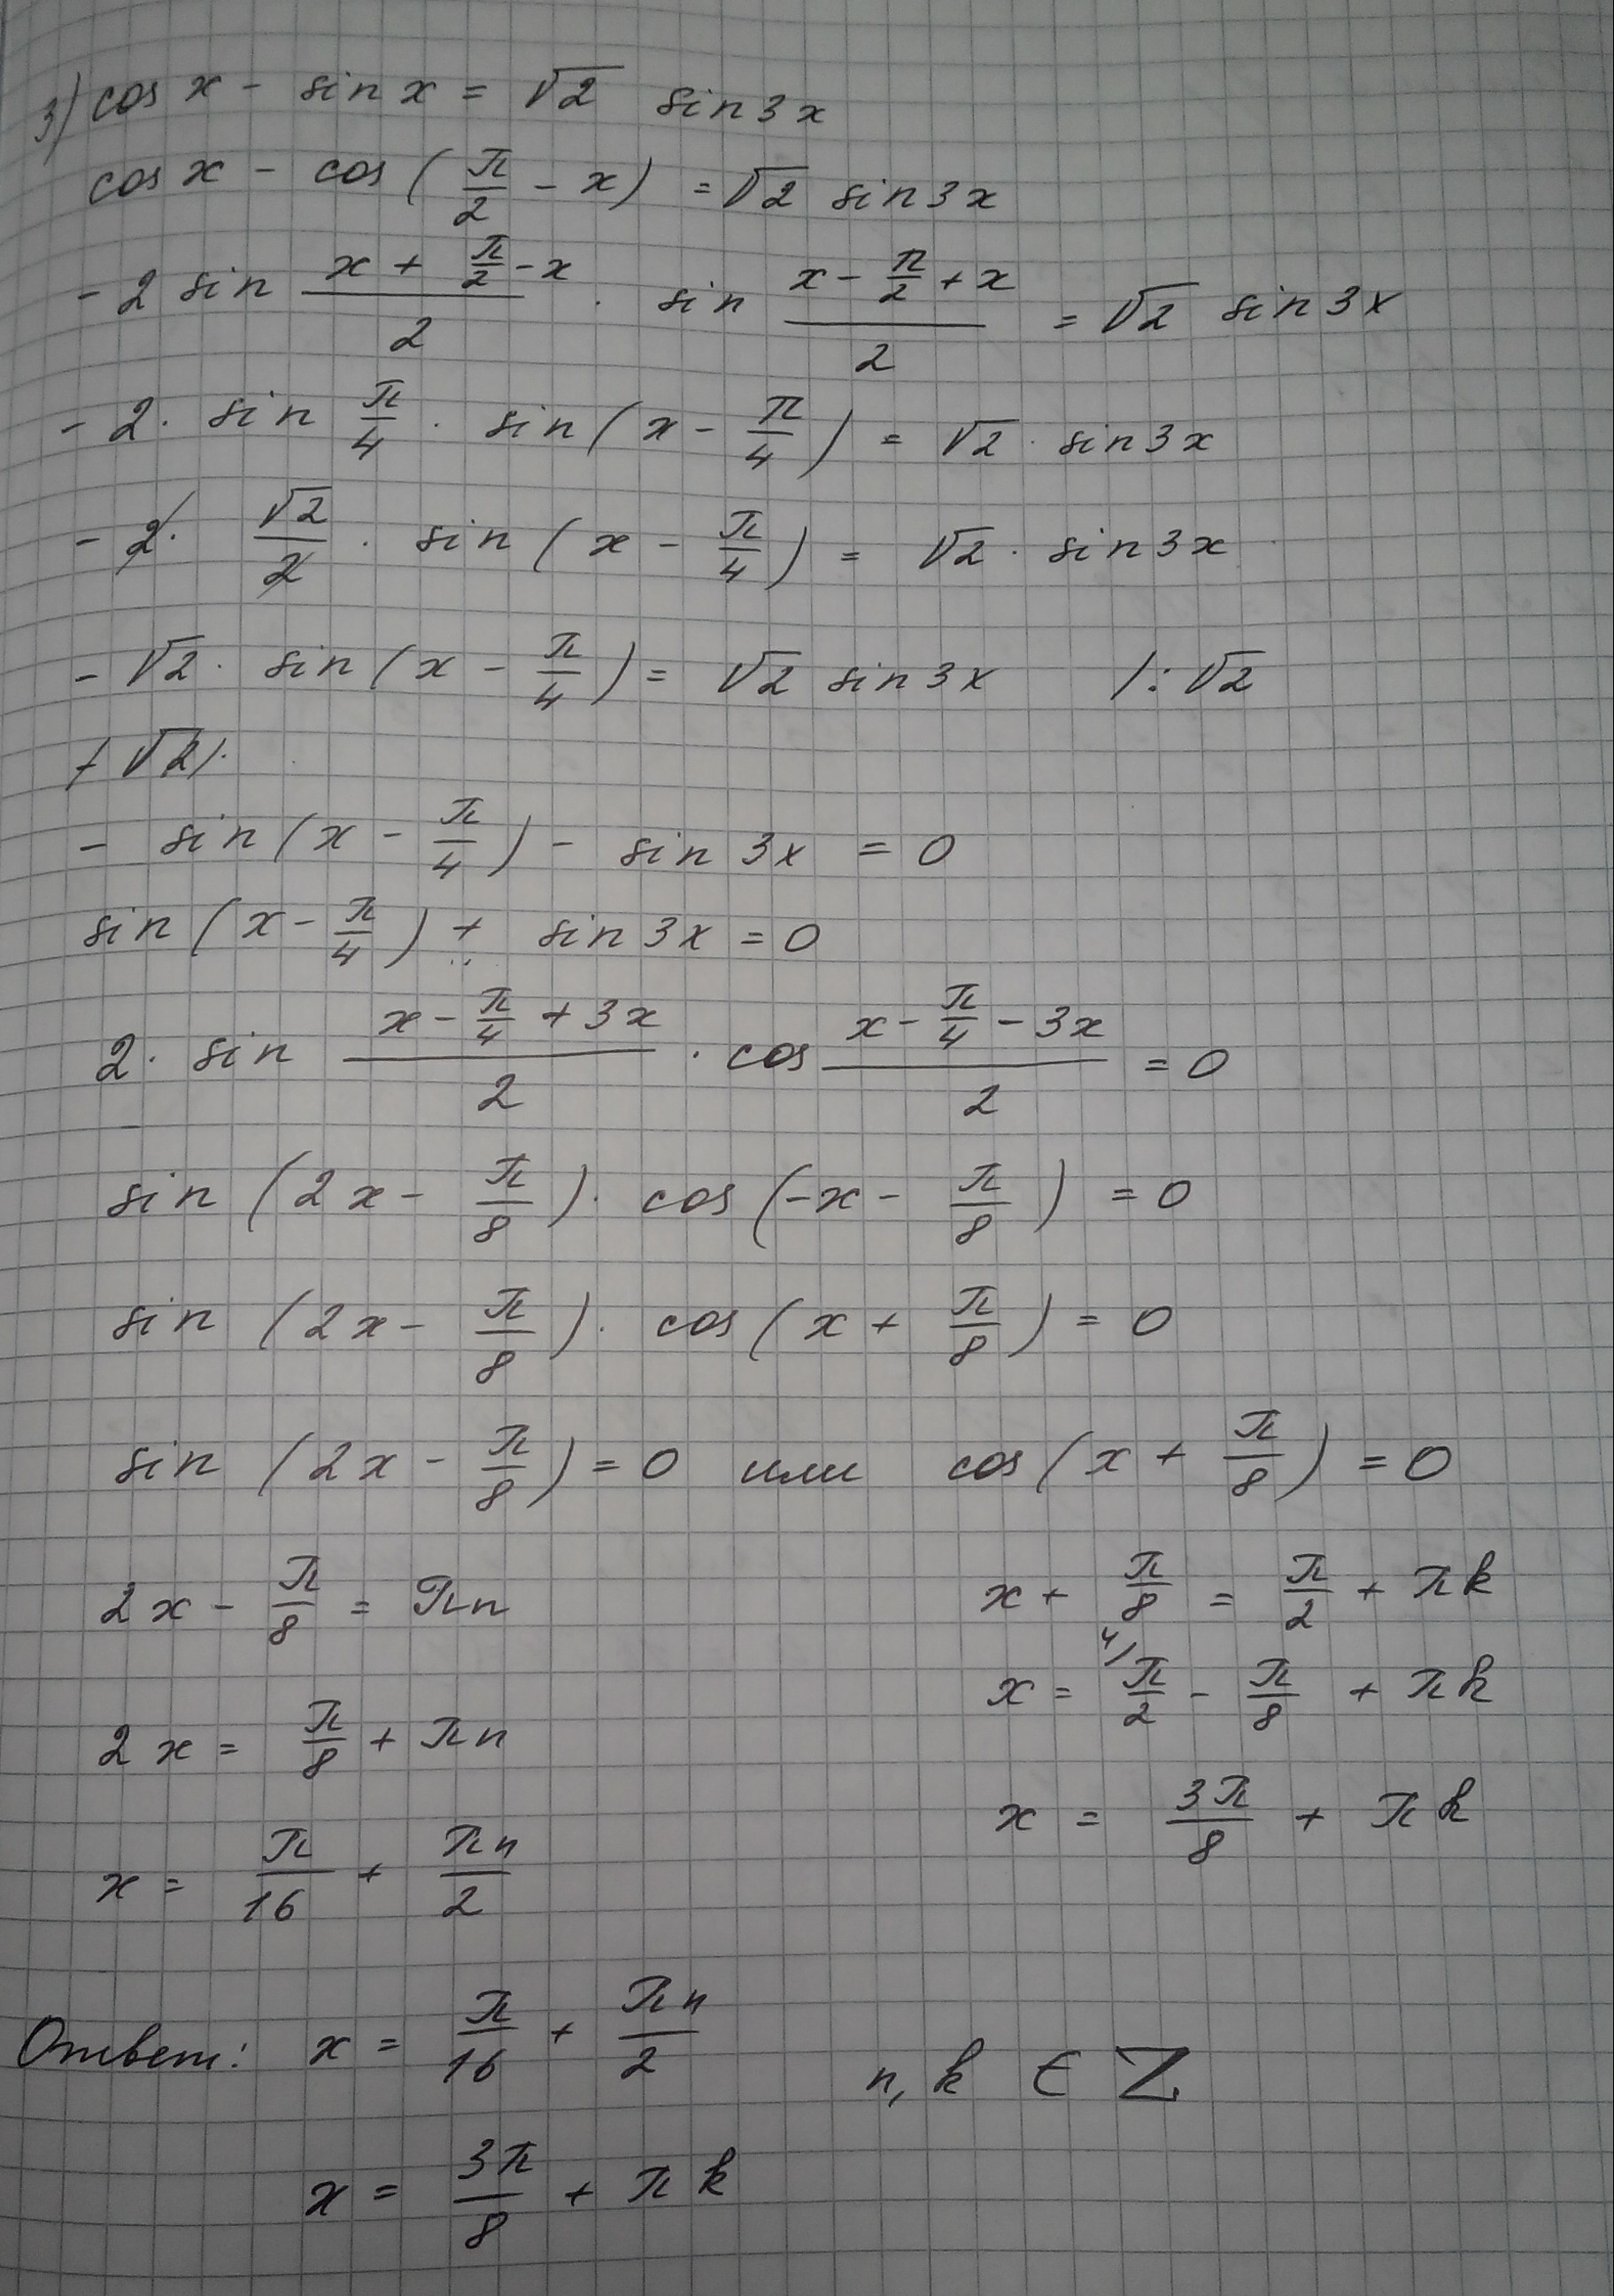 3) cos x - sin x = √2 sin 3x
cos x - cos (π/2 - x) = √2 sin 3x
- 2 sin (x + π/2 - x)/2 · sin (x - π/2 + x)/2 = √2 sin 3x
- 2 · sin π/4 · sin (x - π/4) = √2 · sin 3x
- 2 · √2/2 · sin (x - π/4) = √2 · sin 3x
- √2 · sin (x - π/4) = √2 sin 3x /: √2
- sin (x - π/4) - sin 3x = 0
sin (x - π/4) + sin 3x = 0
2 · sin (x - π/4 + 3x)/2 · cos (x - π/4 - 3x)/2 = 0
sin (2x - π/8) · cos (-x - π/8) = 0
sin (2x - π/8) · cos (x + π/8) = 0
sin (2x - π/8) = 0 или cos (x + π/8) = 0
2x - π/8 = πn
x + π/8 = π/2 + πk
2x = π/8 + πn
x = 4/ π/2 - π/8 + πk
x = π/16 + πn/2
x = 3π/8 + πk
Ответ: x = π/16 + πn/2 n, k ∈ Z
x = 3π/8 + πk